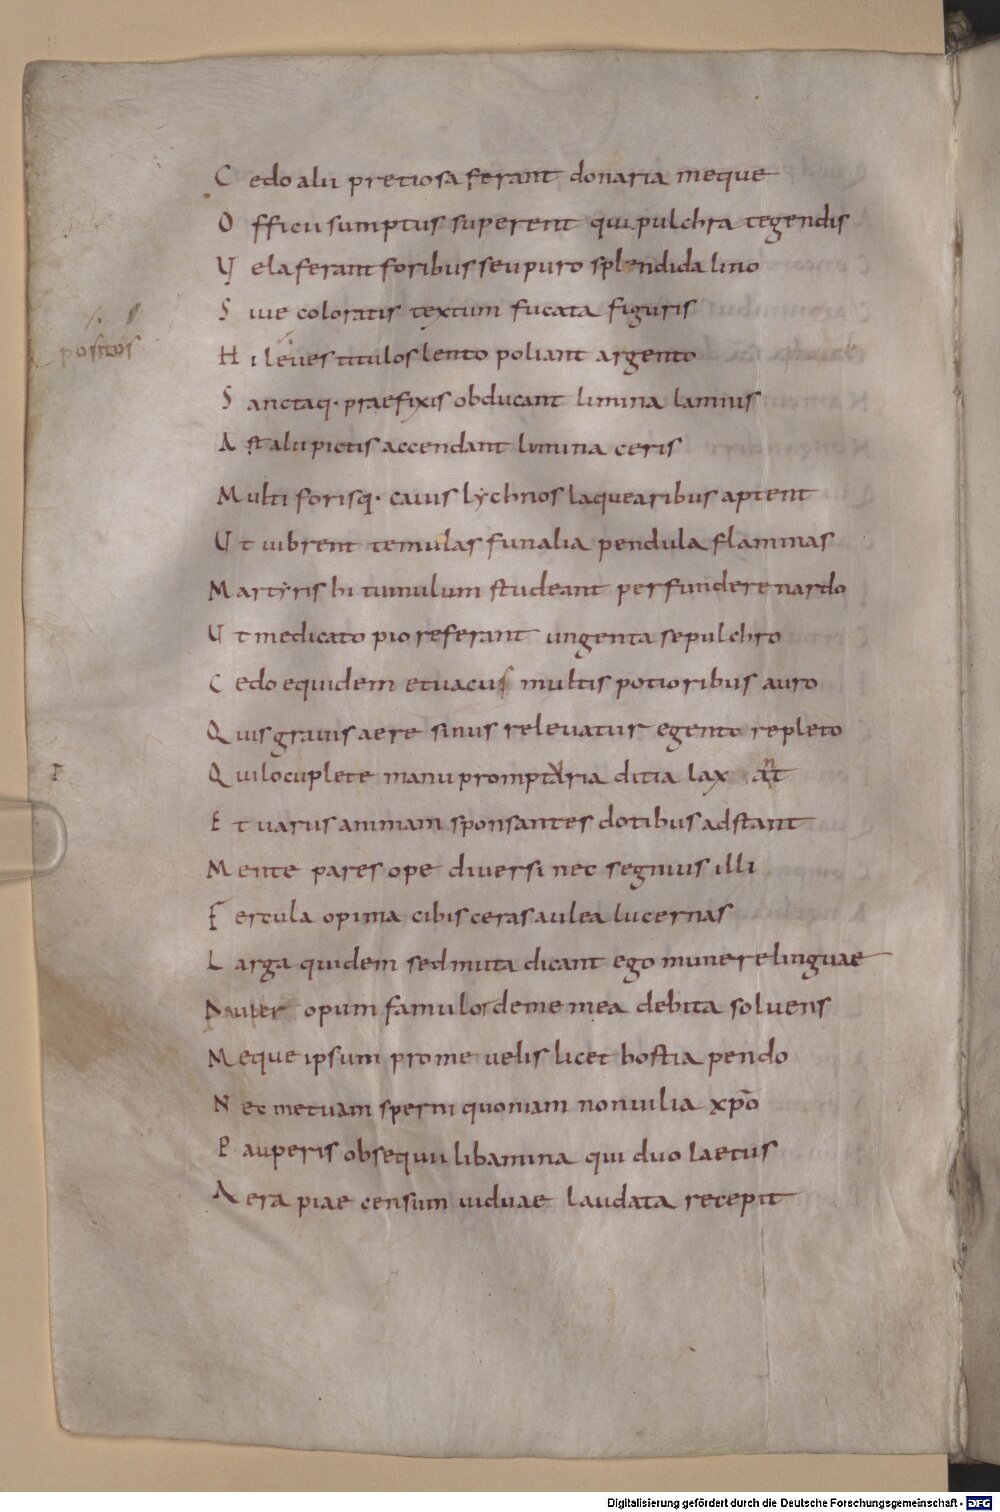 Cedo alii pretiosa ferant donaria meque
Officii sumptus superent qui pulchra tegendis
Vela ferant foribus seu puro splendida lino
Siue coloratis textum fucata figuris
positos
Hi leues titulos lento poliant argento
Sanctaq· praefixis obducant limina lamnis
Ast alii pictis accendant lumina ceris
Multiforisq· cauis lychnos laquearibus aptent
Ut uibrent temulas funalia pendula flammas
Martyris hi tumulum studeant perfundere nardo
Ut medicato pio referant ungenta sepulchro
Cedo equidem et uacuus multis potioribus auro
Quis grauis aere sinus releuatur egento repleto
Qui locuplete manu promptaria ditia laxant
Et uarus animam sponsantes dotibus adstant
Mente pares ope diuersi nec segnius illi
Fercula opima cibis ceras aulea lucernas
Larga quidem sed muta dicant ego munere linguae
Nauper opum famulos deme mea debita soluens
Meque ipsum pro me uelis licet hostia pendo
Nec metuam sperni quoniam non uilia xp̄o
Pauperis obsequii libamina qui duo laetus
Aera piae censum uiduae laudata recepit
Digitalisierung gefördert durch die Deutsche Forschungsgemeinschaft - DFG